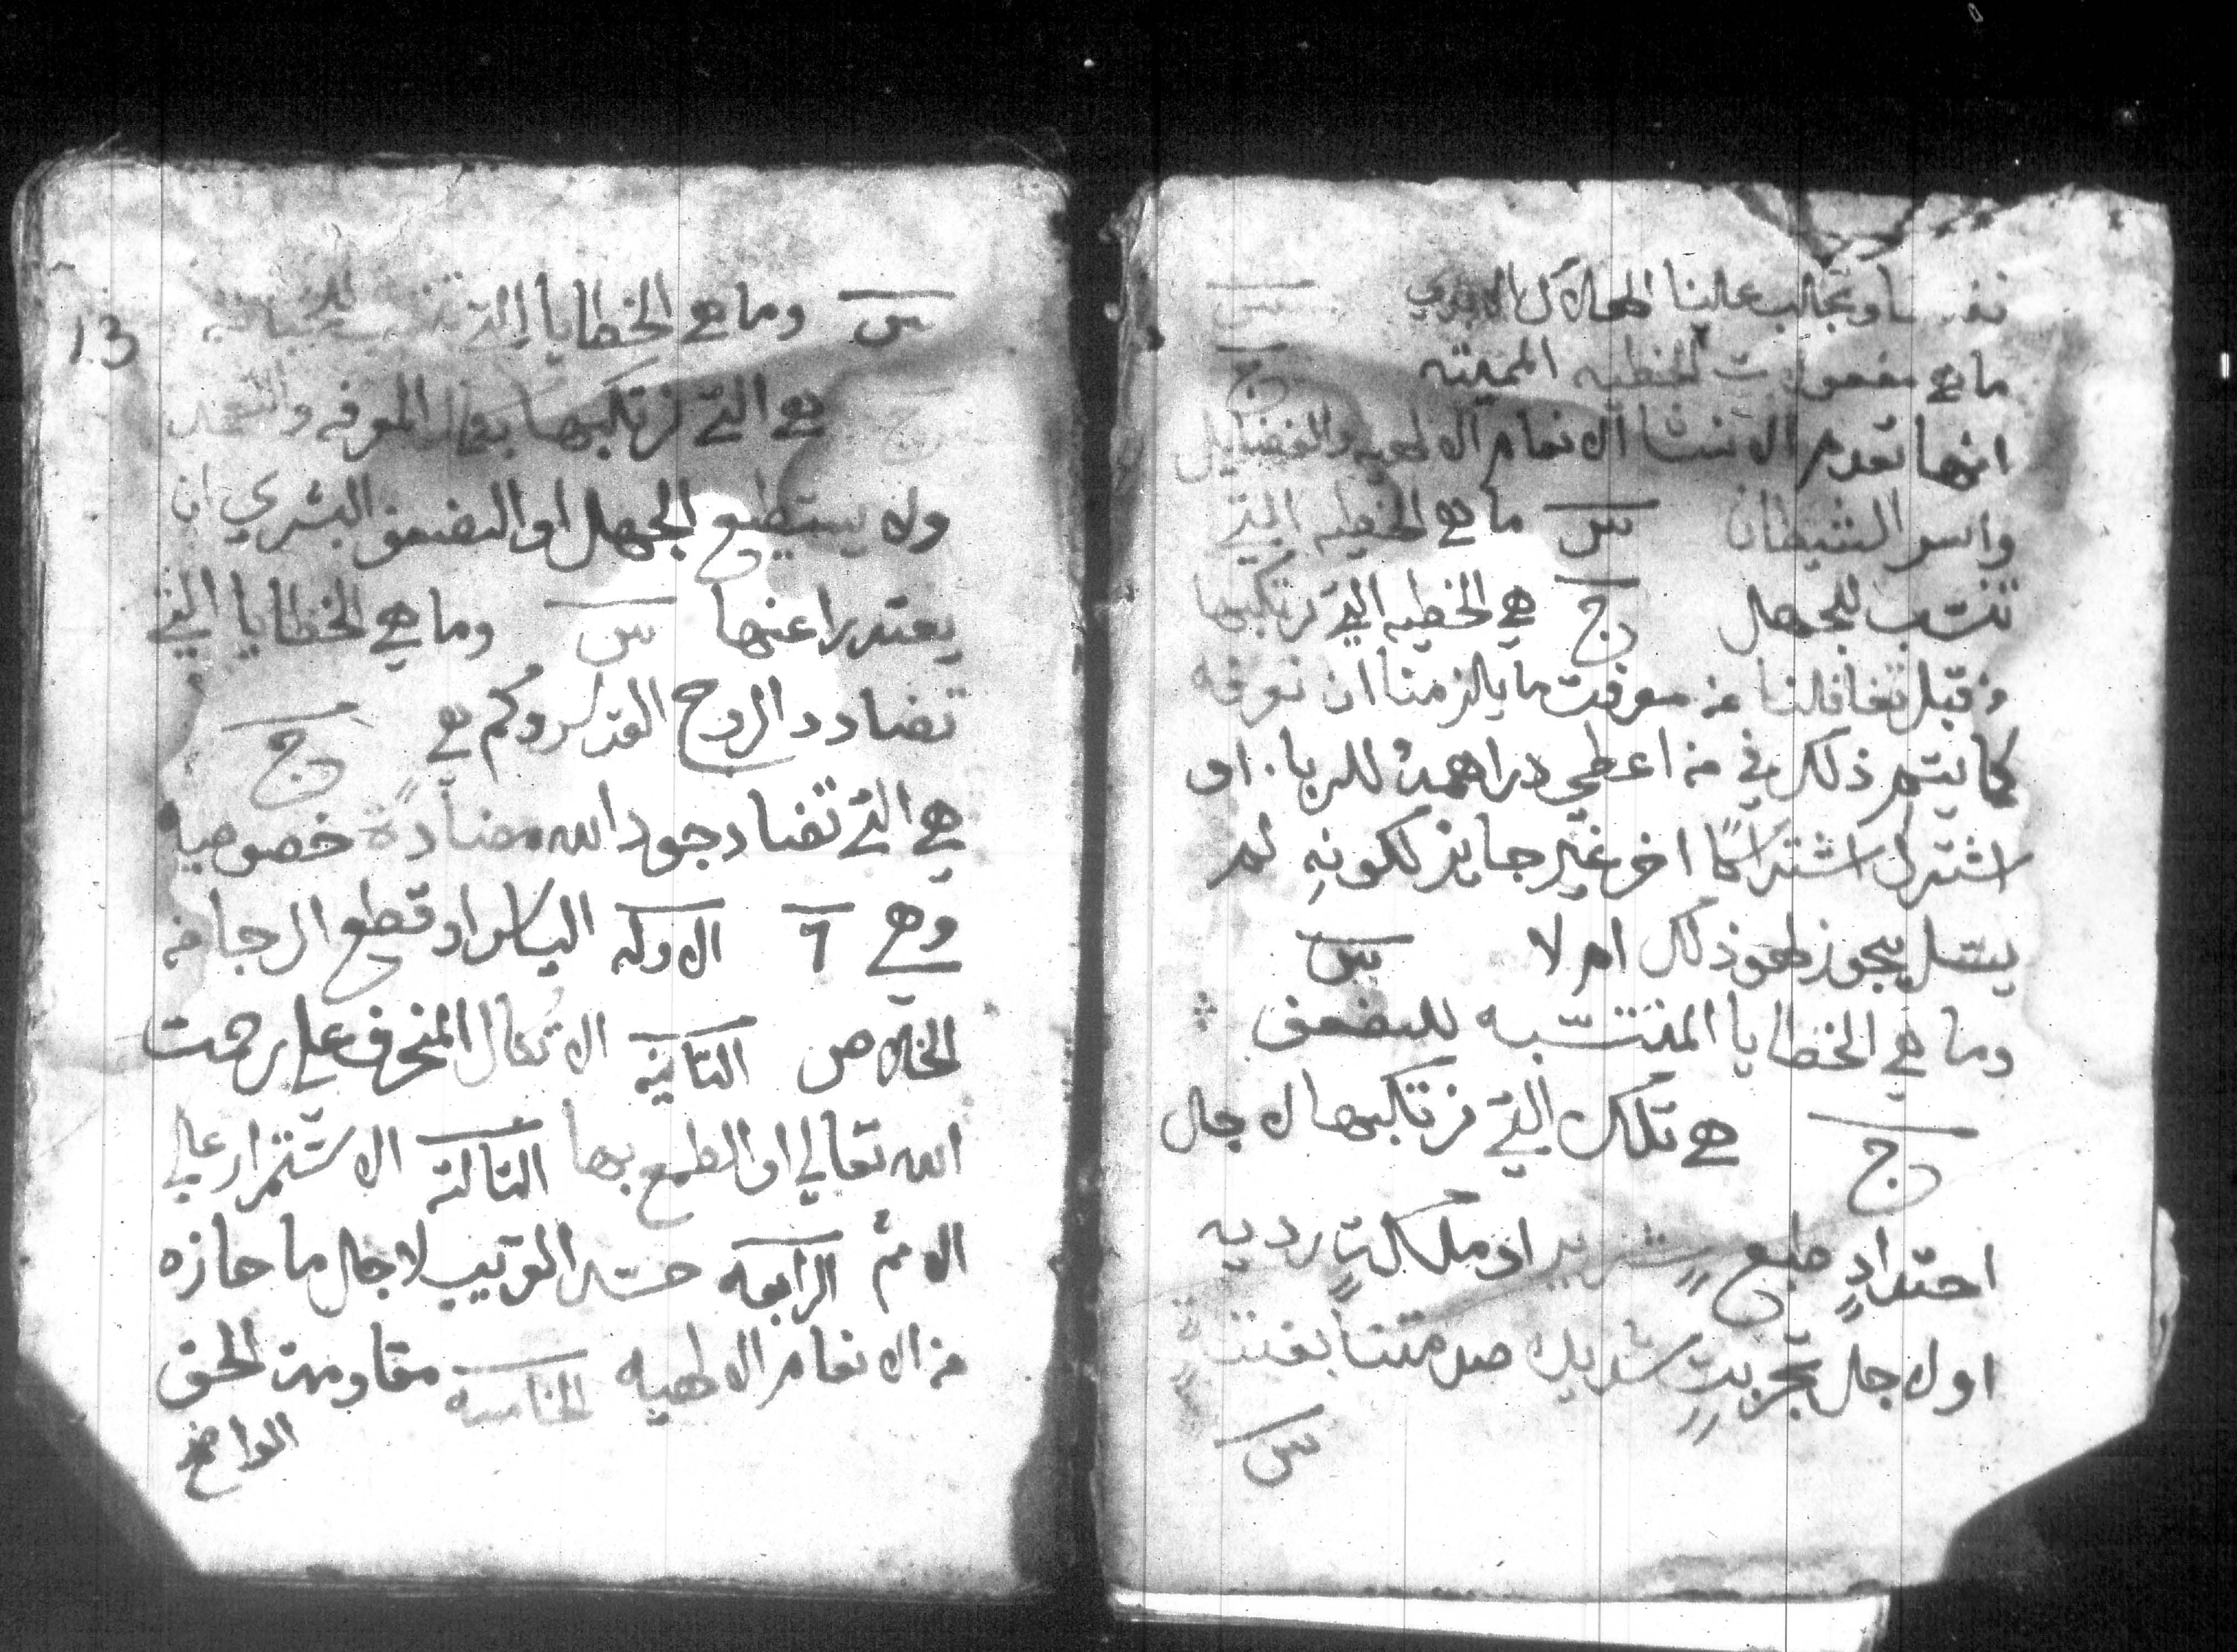 وتجلب علينا الهلاك الابدي س
ما هي مفعولات الخطيه المميته ج
انها تعدم الانسا الانعام الالهيه والفضايل
واسر الشيطان س ما هي الخطيه التي
تنتسب للجهل ج هي الخطيه التي نرتكبها
من قبل تغافلنا من معرفت ما يلزمنا ان نعرفه
كما يتم ذلك في من اعطي دراهمه للربا. او
اشترك اشتراكًا اخر غير جايز لكونهِ لم
يسل يجوز لهو ذلك ام لا س
وما هي الخطايا المنتسبه للضعف
ج هي تلك التي نرتكبها لاجل
احتدادٍ طبعٍ شريرٍ او ملكاتٍ رديه
او لاجل تجربةٍ شديدة صدمتنا بغتتةٍ
س
13
س وما هي الخطايا التي تنسب للخباثه
ج هي التي نرتكبها بكمال المعرفه والتعمد
ولا يستطيع الجهل او الضعف البشري ان
يعتدرا عنها س وما هي الخطايا التي
تضادد الروح القدس وكم هي ج
هي التي تضاد جود الله مضادةً خصوصيه
وهي ٦ الاوله الياس او قطع الرجا من
الخلاص التانيه الاتكال المنحرف علي رحمت
الله تعالي او الطمع بها التالته الاستمرار علي
الاثم الرابعه حسد القريب لاجل ما حازه
من الانعام الالهيه الخامسه مقاومت الحق
الواضح